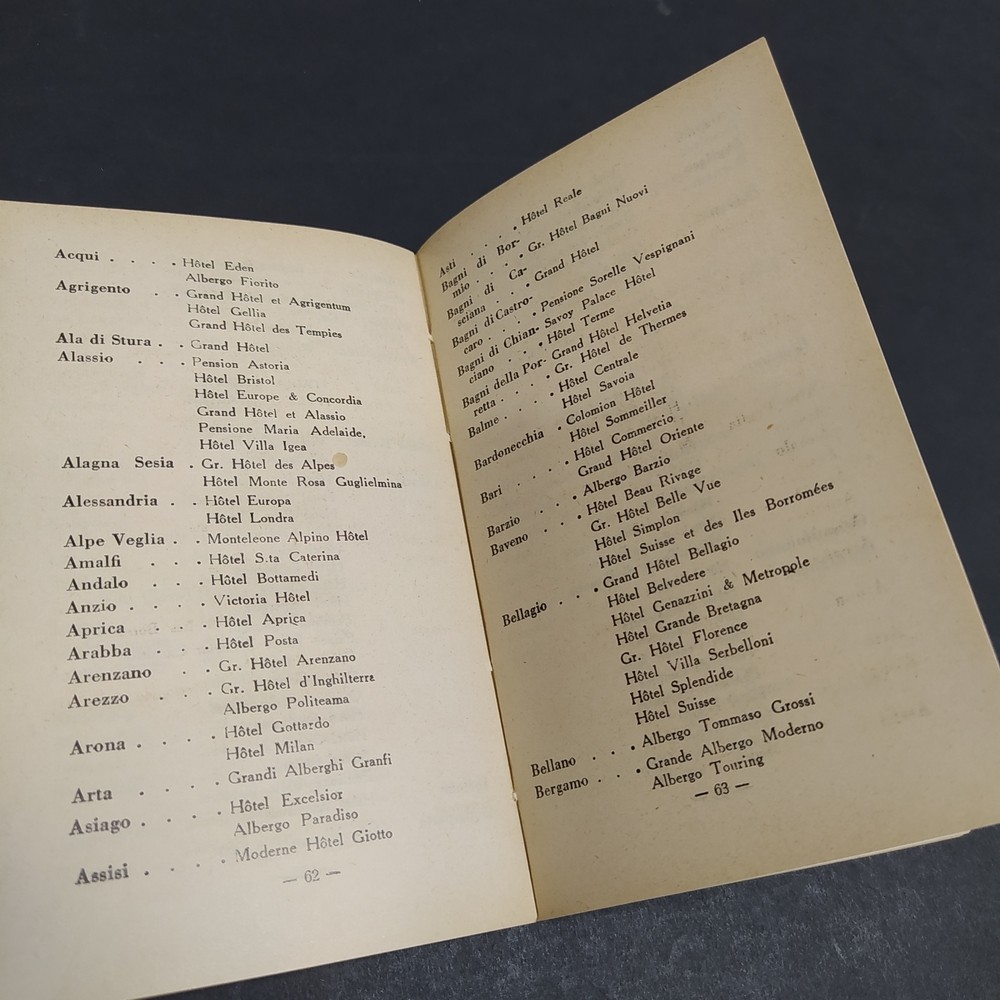 Acqui . . . . Hôtel Eden
Albergo Fiorito
Agrigento . . Grand Hôtel et Agrigentum
Hôtel Gellia
Grand Hôtel des Tempies
Ala di Stura . . Grand Hôtel
Alassio . . . Pension Astoria
Hôtel Bristol
Hôtel Europe & Concordia
Grand Hôtel et Alassio
Pensione Maria Adelaide,
Hôtel Villa Igea
Alagna Sesia . Gr. Hôtel des Alpes
Hôtel Monte Rosa Guglielmina
Alessandria . . Hôtel Europa
Hôtel Londra
Alpe Veglia . . Monteleone Alpino Hôtel
Amalfi . . . Hôtel S.ta Caterina
Andalo . . . Hôtel Bottamedi
Anzio . . . . Victoria Hôtel
Aprica . . . Hôtel Aprica
Arabba . . . Hôtel Posta
Arenzano . . Gr. Hôtel Arenzano
Arezzo . . . Gr. Hôtel d'Inghilterra
Albergo Politeama
Arona . . . . Hôtel Gottardo
Hôtel Milan
Arta . . . . Grandi Alberghi Granfi
Asiago . . . . Hôtel Excelsior
Albergo Paradiso
Assisi . . . . Moderne Hôtel Giotto
— 62 —
Asti . . . . Hôtel Reale
Bagni di Bor-
mio . . . . Gr. Hôtel Bagni Nuovi
Bagni di Ca-
sciana . . . Grand Hôtel
Bagni di Castro-
caro . . . Pensione Sorelle Vespignani
Bagni di Chian- Savoy Palace Hôtel
ciano . . . Hôtel Terme
Bagni della Por- Grand Hôtel Helvetia
retta . . . . Gr. Hôtel de Thermes
Balme . . . . Hôtel Centrale
Hôtel Savoia
Bardonecchia . Colomion Hôtel
Hôtel Sommeiller
Bari . . . . Hôtel Commercio
Grand Hôtel Oriente
Barzio . . . Albergo Barzio
Baveno . . . . Hôtel Beau Rivage
Gr. Hôtel Belle Vue
Hôtel Simplon
Hôtel Suisse et des Iles Borromées
Bellagio . . . Grand Hôtel Bellagio
Hôtel Belvedere
Hôtel Genazzini & Metropole
Hôtel Grande Bretagna
Gr. Hôtel Florence
Hôtel Villa Serbelloni
Hôtel Splendide
Hôtel Suisse
Bellano . . . Albergo Tommaso Grossi
Bergamo . . . Grande Albergo Moderno
Albergo Touring
— 63 —